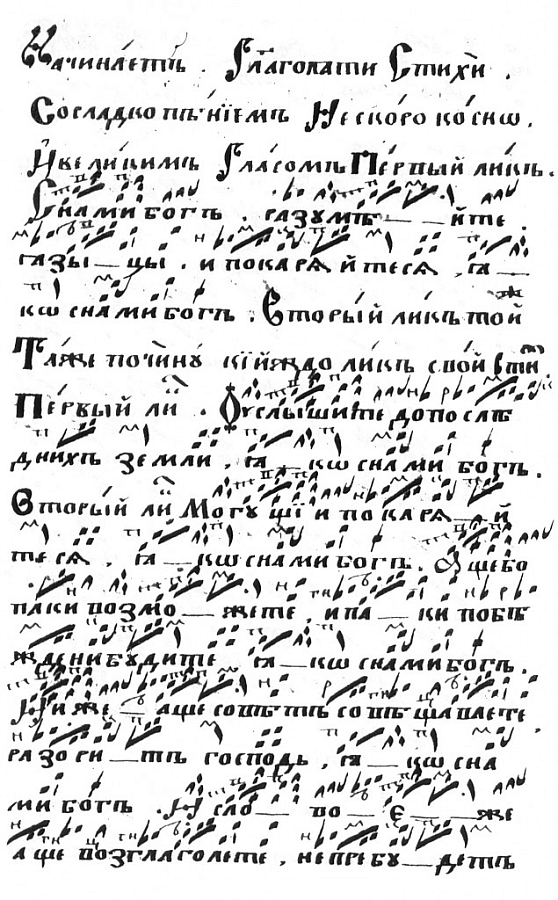 Начина́етъ . Глаголати Стихѝ .
Со сладкопѣ́нїемъ Не ско́ро ко́сно ,
И҆ вели́кимъ Гла́сомъ Пе́рвый ликъ .
С нами богъ . разумѣ — йте .
ꙗзы — цы . и покаряйтесѧ , ꙗ —
кѡ с нами богъ . Вторы́й ли́къ то́й
Та́ѧже по чи́нꙋ кі́йѧждо ликъ сво́й
Пе́рвый ли . Оуслы́шите до послѣ
днихъ земли , ꙗ — кѡ с нами богъ .
Вторы́й ли Могꙋщїи покарѧ — й
тесѧ , ꙗ — кѡ с нами богъ . Аще бо
паки возмо — жете , и па — ки побѣ
ждени будите ꙗ — кѡ с нами богъ .
И иже — аще совѣтъ совѣщаваете ,
разори — тъ господь , ꙗ — кѡ с на
ми богъ . И сло — во — є — же
аще возглаголете , не пребу — детъ